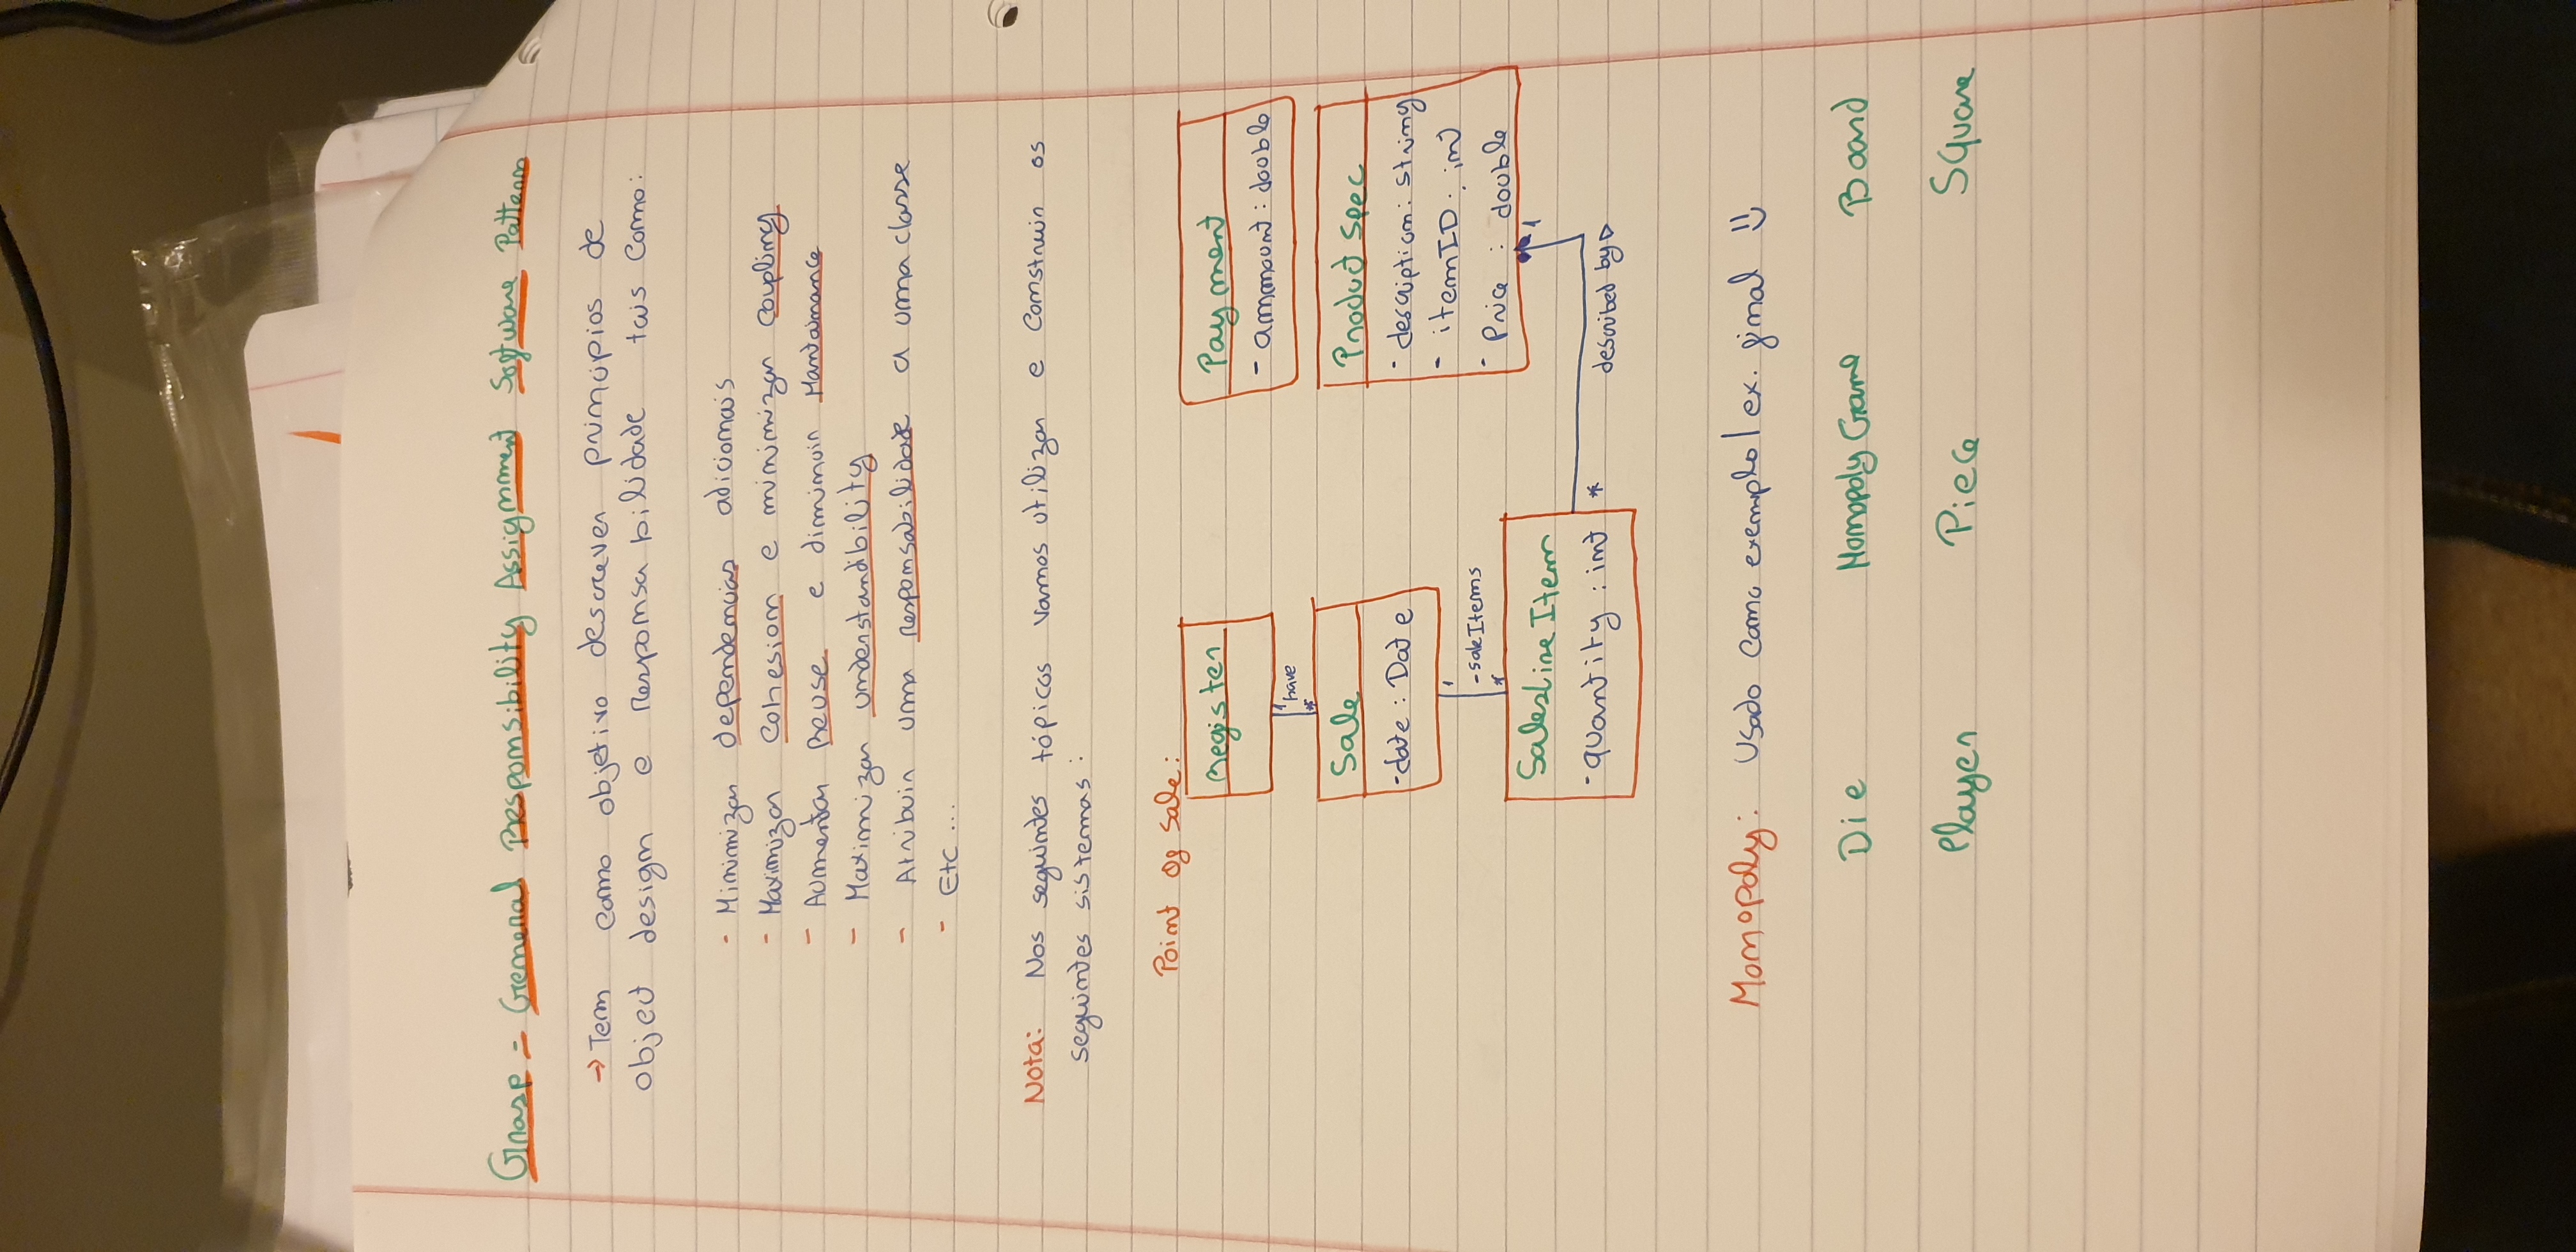 Grasp = General Responsibility Assignment Software Pattern
→ Tem como objetivo descrever principios de
object design e responsabilidade tais como:
- Minimizar dependencias adicionais
- Maximizar cohesion e minimizar coupling
- Aumentar Reuse e diminuir Mantainance
- Maximizar understandibility
- Atribuir uma responsabilidade a uma classe
- Etc ...
Nota: Nos seguintes tópicos vamos utilizar e construir os
seguintes sistemas:
Point of Sale:
Register
Payment
- ammount : double
1
have
*
Sale
- date : Date
Product Spec
- description : string
- itemID : int
- Price : double
1
- saleItems
*
SalesLine Item
- quantity : int
*
1
described by ▷
Monopoly: Usado como exemplo / ex. final
Die Monopoly Game Board
Player Piece Square